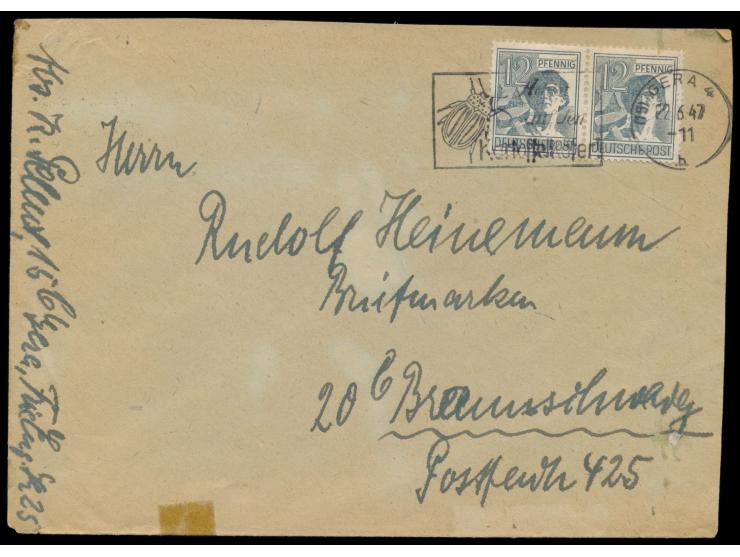 12 PFENNIG 12 PFENNIG
DEUTSCHE POST DEUTSCHE POST
den
Kartoffelkäfer
(15b) GERA 4
22.6.47
-11
b
Herrn
Rudolf Heinemann
Briefmarken
20 b Braunschweig
Postfach 425
Gera,